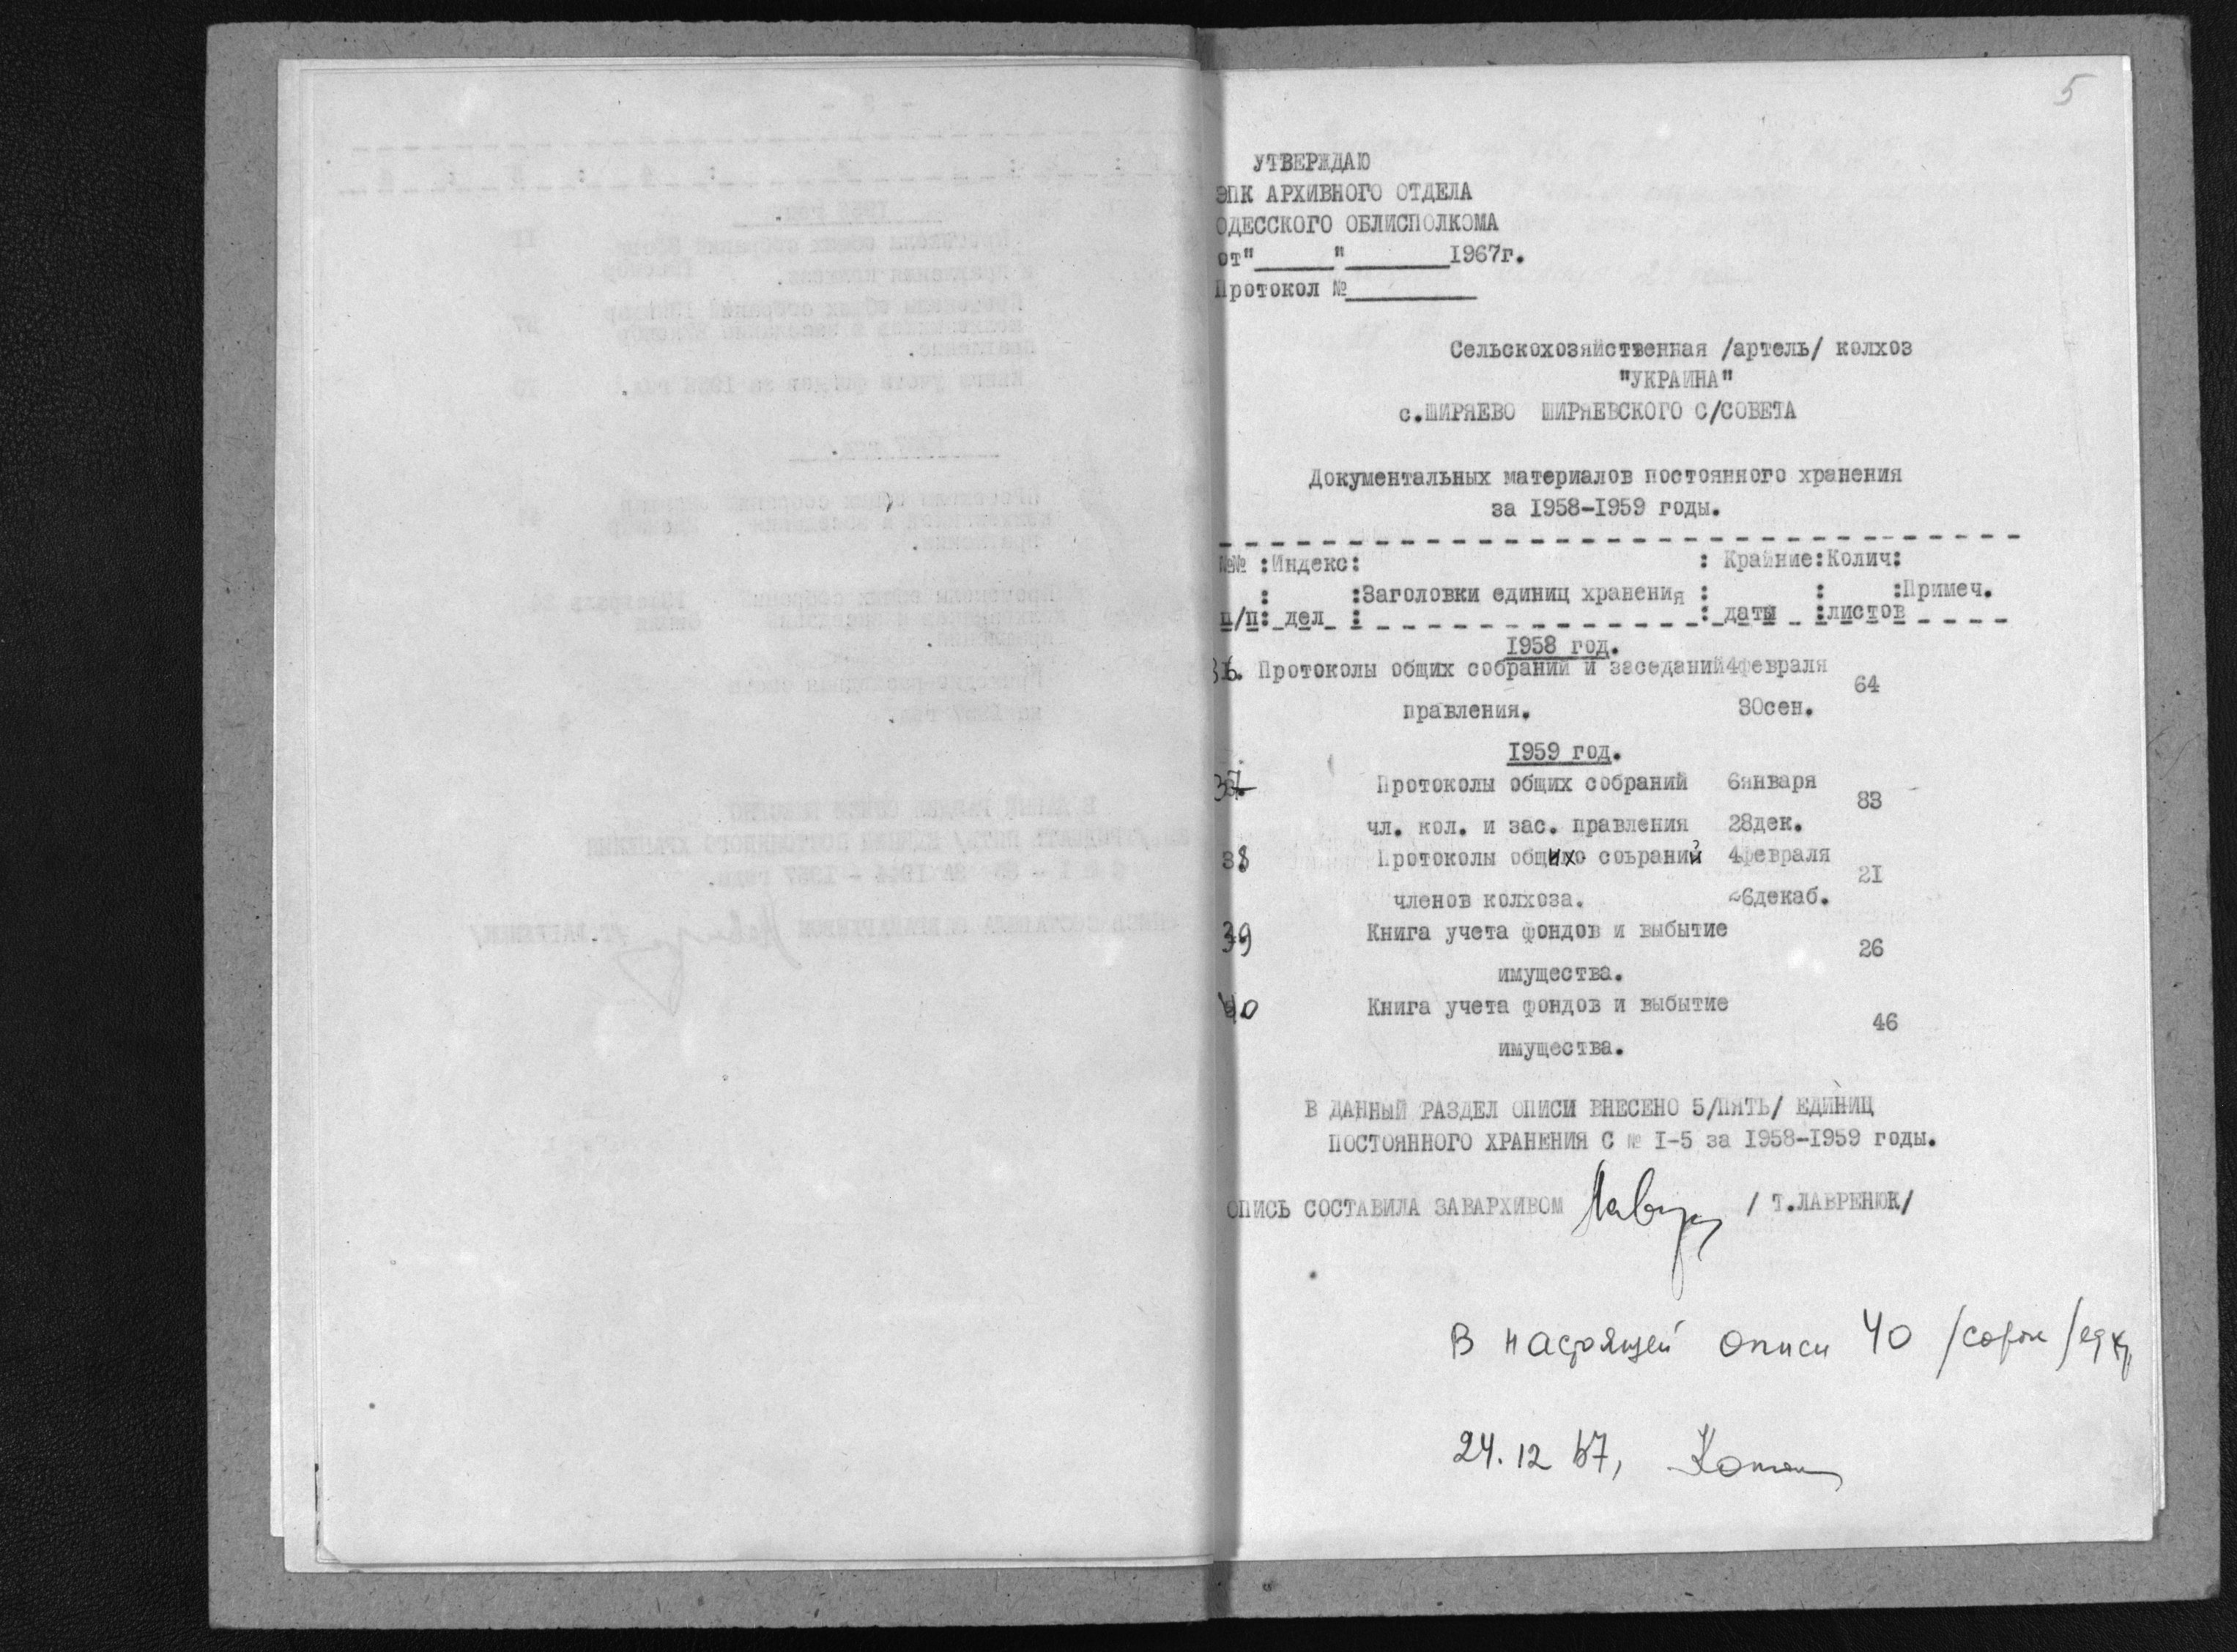 5
УТВЕРЖДАЮ
ЭПК АРХИВНОГО ОТДЕЛА
ОДЕССКОГО ОБЛИСПОЛКОМА
от"______"________1967г.
Протокол №__________
Сельскохозяйственная /артель/ колхоз
"УКРАИНА"
с.ШИРЯЕВО ШИРЯЕВСКОГО С/СОВЕТА
Документальных материалов постоянного хранения
за 1958-1959 годы.
№№ :Индекс: : Крайние:Колич:
: :Заголовки единиц хранения : : :Примеч.
п/п: дел : : даты :листов
1958 год.
36. Протоколы общих собраний и заседаний 4февраля
64
правления. 30сен.
1959 год.
37. Протоколы общих собраний 6января
83
чл. кол. и зас. правления 28дек.
38 Протоколы общих собраний 4февраля
21
членов колхоза. 26декаб.
39 Книга учета фондов и выбытие
26
имущества.
40 Книга учета фондов и выбытие
46
имущества.
В ДАННЫЙ РАЗДЕЛ ОПИСИ ВНЕСЕНО 5/ПЯТЬ/ ЕДИНИЦ
ПОСТОЯННОГО ХРАНЕНИЯ С № 1-5 за 1958-1959 годы.
ОПИСЬ СОСТАВИЛА ЗАВАРХИВОМ / Т.ЛАВРЕНЮК/
В настоящей описи 40 /сорок/ ед хр
24.12 67,